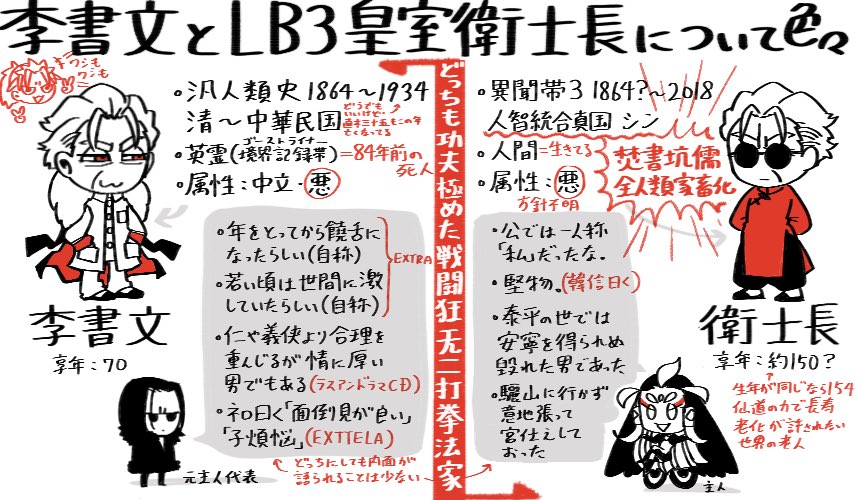 李書文とLB3皇室衛士長について色々
ワシも
ワシも
・汎人類史 1864〜1934
清〜中華民国
どうでも
いいけど
直木三十五もこの年
亡くなってる
・英霊(境界記録帯)=84年前の
ゴーストライナー
死人
・属性:中立・悪
・年をとってから饒舌に
なったらしい(自称)
・若い頃は世間に激
していたらしい(自称)
EXTRA
・仁や義侠より合理を
重んじるが情に厚い
男でもある(ラスアンドラマCD)
・ネロ曰く「面倒見が良い」
「子煩悩」(EXTTELA)
李書文
享年:70
元主人代表
どっちにしても内面が
語られることは少ない
どっちも功夫極めた戦闘狂无二打拳法家
・異聞帯3 1864?〜2018
人智統合真国 シン
・人間=生きてる
・属性:悪
方針不明
焚書坑儒
全人類家畜化
・公では一人称
「私」だったな。
・堅物。(韓信曰く)
・泰平の世では
安寧を得られぬ
毀れた男であった
・驪山に行かず
意地張って
宮仕えして
おった
衛士長
享年:約150?
生年が同じなら154
仙道の力で長寿
老化が許されたい
世界の老人
主人